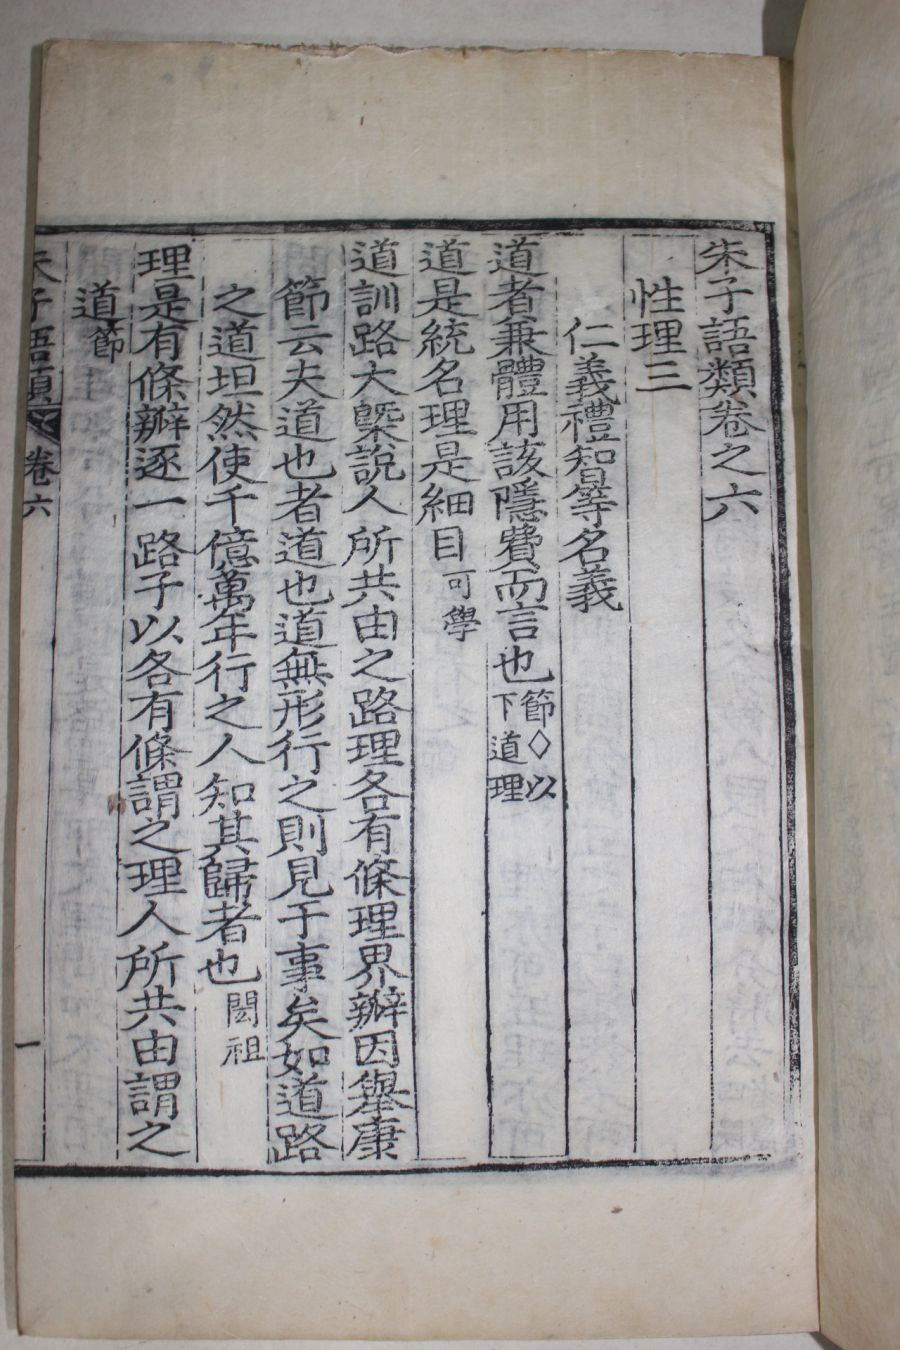 朱子語類卷之六
性理三
仁義禮智等名義
道者兼體用該隱費而言也節◇以下道理
道是統名理是細目可學
道訓路大槩說人所共由之路理各有條理界辦因舉康
節云夫道也者道也道無形行之則見于事矣如道路
之道坦然使千億萬年行之人知其歸者也閎祖
理是有條辦逐一路子以各有條謂之理人所共由謂之
道節
朱子語類 卷六 一